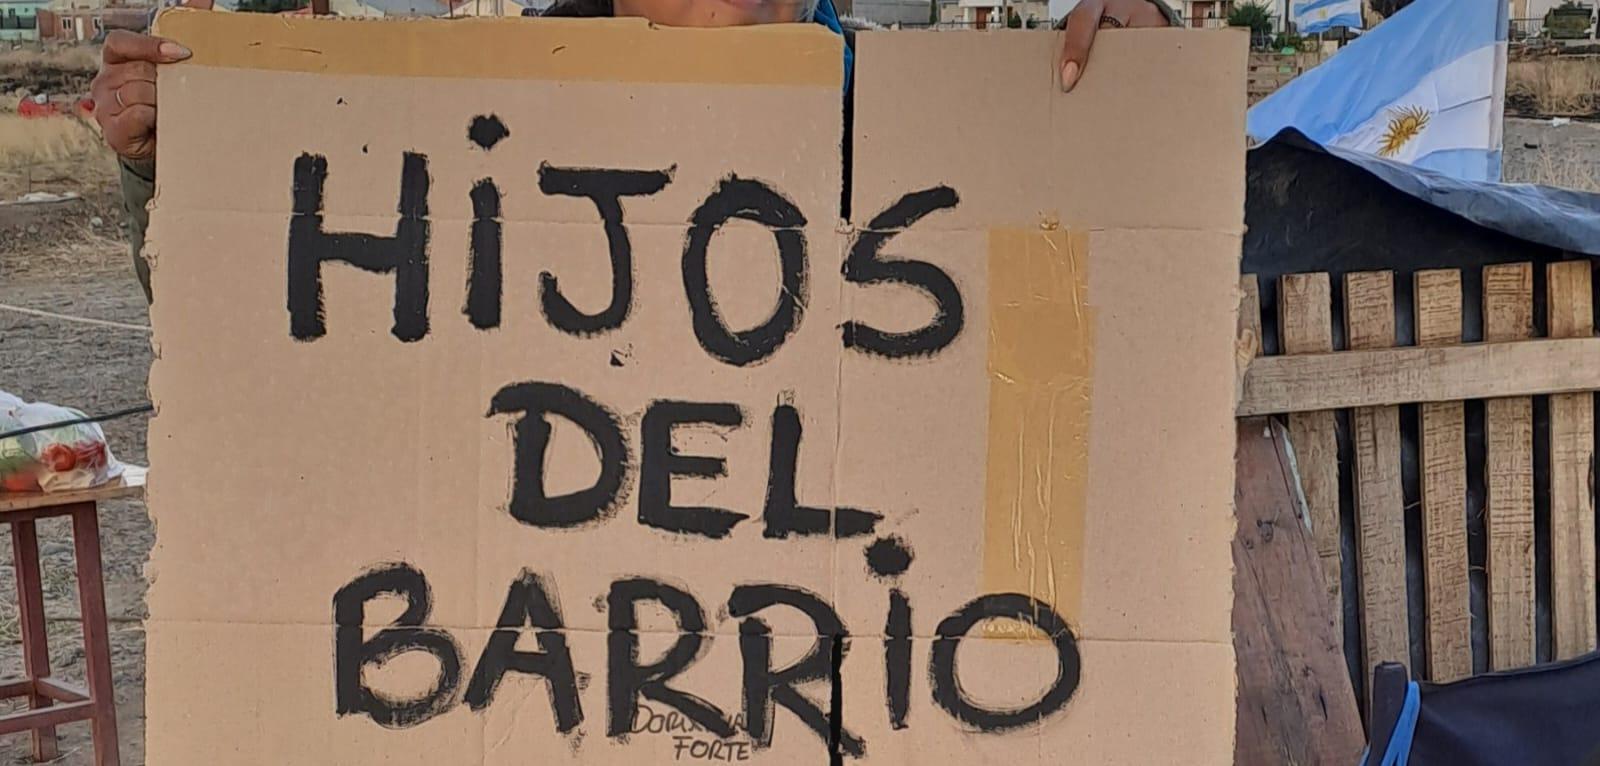 HiJOS
DEL
BARRiO
FORTE